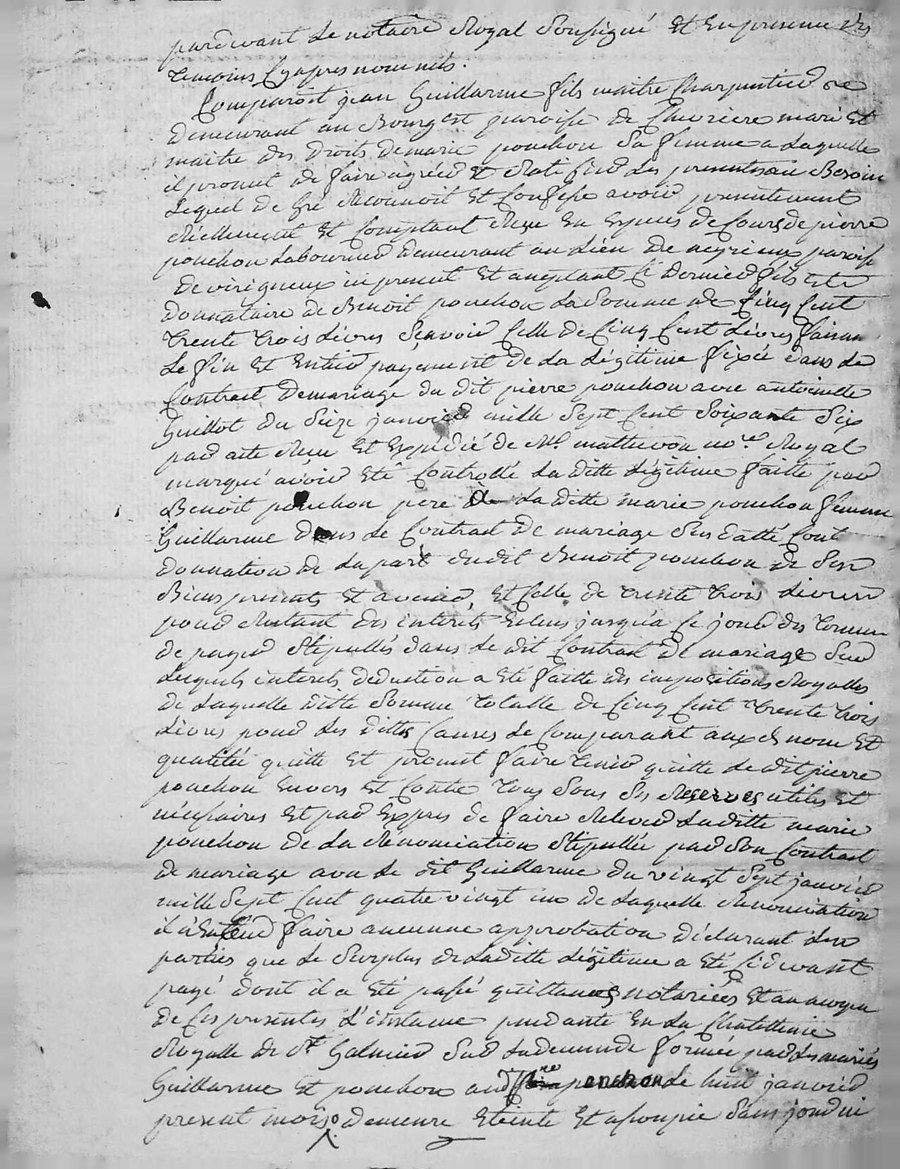 pardevant Le notaire Royal Soussigné Et En presence des
temoins Cy apres nommés.
Comparoit jean Guillarme fils maitre Charpentier
demeurant au Bourg Et paroisse de Chevriere mari Et
maitre des Droits de marie ponchon Sa femme a Laquelle
il promet de faire agréer Et Ratifier Les presentes au Besoin
Lequel de Gré Reconnoit Et Confesse avoir presentement
Réellement Et Comptant Reçu En Especes de Cours de pierre
ponchon Laboureur demeurant au Lieu de paroisse
de virigneux ici present Et aceptant Ce Dernier fils Et
donnataire de Benoit ponchon La Somme de Cinq Cent
trente trois Livres Sçavoir Celle de Cinq Cent Livres faisan
Le fin Et Entier payement de La Légitime fixée dans Le
Contrat de mariage du dit pierre ponchon avec antoinette
Guillot du Seize janvier mille Sept Cent Soixante Six
par acte Reçu Et Expedié de Me. mattevon nore. Royal
marqué avoir Eté Controllé La ditte Légitime faitte par
Benoit ponchon pere a La ditte marie ponchon femme
Guillarme Dans Le Contrat de mariage Susdatté Cont
donnation de La part du dit Benoit ponchon de Ses
Biens presents Et avenir, Et Celle de trente trois Livres
pour Restant des interets Echus jusqu'a Ce jour des termes
de payer Stipullés dans Le dit Contrat de mariage Sur
Lesquels interets deduction a Eté faitte des impositions Royalles
de Laquelle ditte Somme totalle de Cinq Cent trente trois
Livres pour Les dittes Causes Le Comparant aux ds nom Et
qualités quitte Et promet faire tenir quitte Le dit pierre
ponchon Envers Et Contre tous Sous Les Reserves utiles Et
nécessaires Et par Expres de faire Relever La ditte marie
ponchon de La Renonciation Stipullée par Son Contrat
de mariage avec Le dit Guillarme du vingt Sept janvier
mille Sept Cent quatre vingt un de Laquelle Renonciation
il n'Entend faire aucune approbation Déclarant Les
parties que Le Surplus de La ditte Légitime a Eté Cidevant
payé dont il a Eté passé quittances notariées Et au moyen
de Ces presentes L'instance pendante En La Chatellenie
Royalle de St Galmier Sur La demande formée par Les mariés
Guillarme Et ponchon audit pre ponchon Le huit janvier
present mois demeure Eteinte Et assoupie Sans